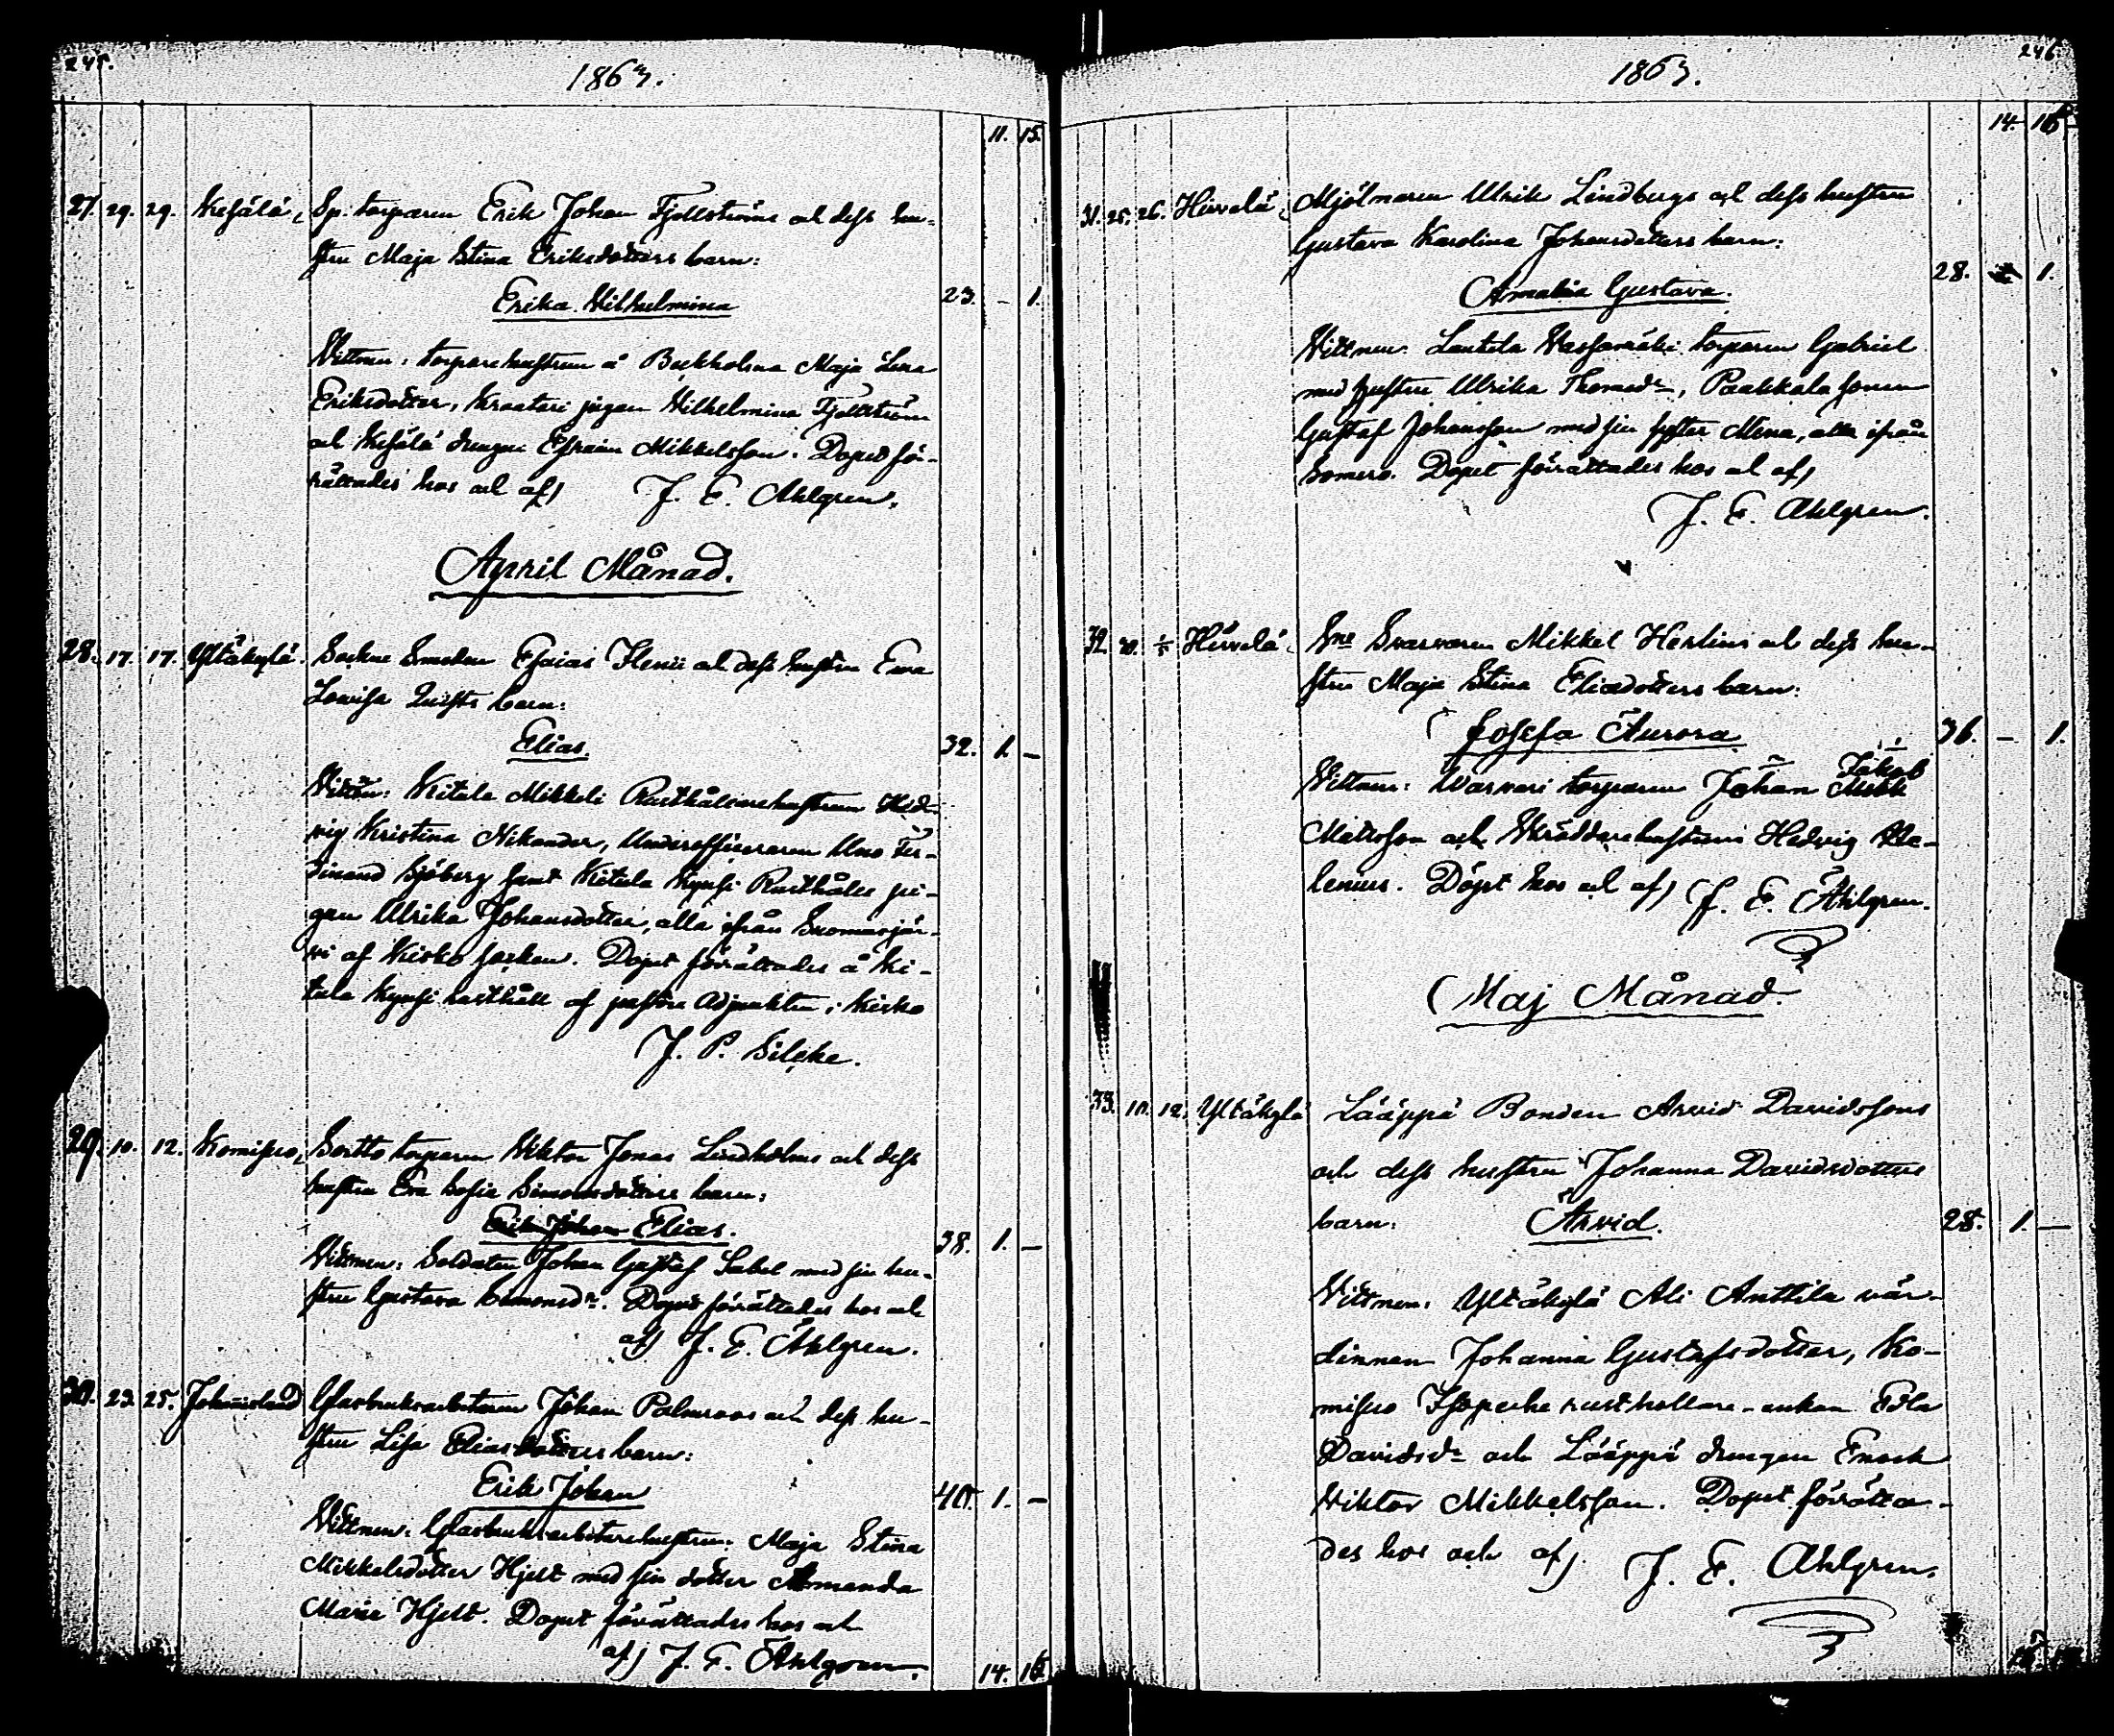 245.
1863.
11. 15.
27. 29. 29. Kesälä, Sp. torparen Erik Johan Fjellströms och dess hu-
stru Maja Stina Eriksdotters barn:
Erika Wilhelmina
23. – 1.
Vittnen: torparehustrun å Bockholma Maja Lena
Eriksdotter, Kraatari pigan Wilhelmina Fjellström
och Kesälä drengen Efraim Mikkelsson. Dopet för-
rättades hos och af) J. E. Ahlgren.
April Månad.
28. 17. 17. Yltäkylä. Sockne Smeden Esaias Flenii och dess hustru Eva
Lovisa Quists barn:
Elias.
32. 1. –
Vittn: Kitala Mikkeli Rusthållarehustrun Hed-
vig Kristina Nikander, Underofficeraren Uno Fer-
dinand Sjöberg samt Kitala Kynsi Rusthålls pi-
gan Ulrika Johansdotter, alla ifrån Suomusjär-
vi af Kisko socken. Dopet förrättades å Ki-
tala Kynsi rusthåll af pastors Adjunkten i Kisko
J. P. Silcke.
29. 10. 12. Komisuo, Sortto torparen Viktor Jonas Lindholms och dess
hustru Eva Sofia Simonsdotters barn:
Erik Johan Elias.
38. 1. –
Vittnen: Soldaten Johan Gustaf Sabel med sin hu-
stru Gustava Simonsdr. Dopet förrättades hos och
af) J. E. Ahlgren.
30. 23. 25. Johannislund Glasbruksarbetaren Johan Palmroos och dess hu-
stru Lisa Eliasdotters barn:
Erik Johan
40. 1. –
Vittnen: Glasbruksarbetarehustrun Maja Stina
Mikkelsdotter Hjelt med sin dotter Amanda
Maria Hjelt. Dopet förrättades hos och
af) J. E. Ahlgren.
14. 16.
246.
1863.
14. 16
31. 25. 26. Hirvelä, Mjölnaren Ulrik Lindbergs och dess hustru
Gustava Karolina Johansdotters barn:
Amalia Gustava.
28. 1.
Vittnen: Lautela torparen Gabriel
med hustru Ulrika Thomasdr, Paakkala sonen
Gustaf Johansson med sin syster Mina, alla ifrån
Somero. Dopet förrättades hos och af)
J. E. Ahlgren.
32. 30. Hirvelä, Sne Svarvaren Mikkel Herlins och dess hu-
stru Maja Stina Eliædotters barn:
Josefa Aurora
36. – 1.
Vittnen: Warvari torparen Johan Jakob
Mattsson och Skräddarehustrun Hedvig
lenius. Döpt hos och af) J. E. Ahlgren.
Maj Månad.
33. 10. 12. Yltäkylä Lääppä Bonden Arvid Davidssons
och dess hustru Johanna Davidsdotters
barn: Arvid.
28. 1. –
Vittnen: Yltäkylä Ali Anttila vär-
dinnan Johanna Gustafsdotter, Ko-
misuo Isopere rusthollare-enkan Edla
Davidsdr och Lääppä drengen Enock
Viktor Mikkelsson. Dopet förrätta-
des hos och af) J. E. Ahlgren.